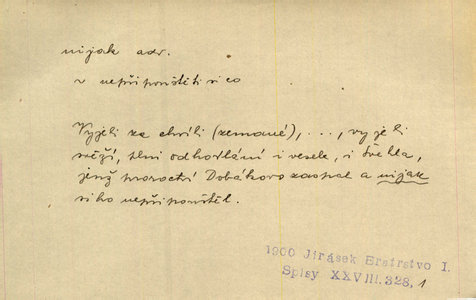 nijak adv.
~ nepřipouštěti si co
Vyjeli za chvíli (zemané), ..., vyjeli
svěží, plni odhodlání i vesele, i Švehla,
jenž proroctví Dobákovo zaspal a nijak
si ho nepřipouštěl.
1900 Jirásek Bratrstvo I.
Spisy XXVIII. 328, 1